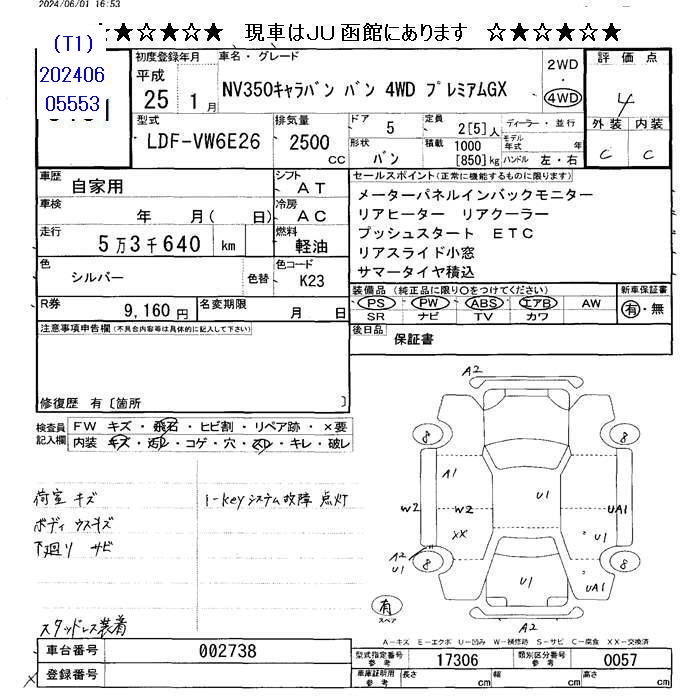 2024/06/01 16:53
★☆★☆★ 現車はJU函館にあります ☆★☆★☆★
(T1)
202406
05553
初度登録年月
平成
25 1月
車名・グレード
NV350キャラバン バン 4WD プレミアムGX
2WD
・
4WD
評価点
4
型式
LDF-VW6E26
排気量
2500
CC
ドア
5
定員
2[5]人
ディーラー・並行
モデル年式 年
形状
バン
積載
1000
[850]kg
ハンドル 左・右
外装 内装
C C
車歴
自家用
シフト
AT
車検
年 月( 日)
冷房
AC
走行
5万3千640 km
燃料
軽油
色
シルバー
色替
色コード
K23
R券
9,160円
名変期限
月 日
セールスポイント(正常に機能するものに限ります)
メーターパネルインバックモニター
リアヒーター リアクーラー
プッシュスタート ETC
リアスライド小窓
サマータイヤ積込
装備品(純正品に限り○をつけてください)
PS PW ABS エアB AW
SR ナビ TV カワ
新車保証書
有・無
後日品
保証書
注意事項申告欄(不具合内容等は具体的に記入して下さい)
修復歴 有〔箇所 〕
検査員記入欄
FW キズ・飛石・ヒビ割・リペア跡・×要
内装 キズ・汚レ・コゲ・穴・スレ・キレ・破レ
荷室 キズ
ボディ ウスキズ
下廻り サビ
i-keyシステム故障 点灯
スタッドレス装着
A2
8 8
A1
U1
W2 W2
UA1
XX
U1
A2
U1
8 8
U1
UA1
A2
有
スペア
A-キズ E-エクボ U-凹み W-補修跡 S-サビ C-腐食 XX-交換済
車台番号
002738
登録番号
型式指定番号
参考
17306
類別区分番号
参考
0057
車庫証明用
参考
長さ cm 幅 cm 高さ cm